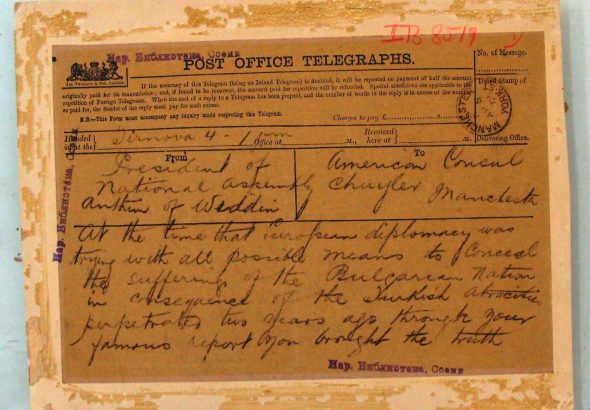 IIB 8519
Нар. Библиотека, София
POST OFFICE TELEGRAPHS.
No. of Message.
If the accuracy of this Telegram (being an Inland Telegram) is doubted, it will be repeated on payment of half the amount
originally paid for its transmission; and, if found to be incorrect, the amount paid for repetition will be refunded. Special conditions are applicable to the
repetition of Foreign Telegrams. When the cost of a reply to a Telegram has been prepaid, and the number of words in the reply is in excess of the number
so paid for, the Sender of the reply must pay for such excess.
Dated Stamp of
MANCHESTER
N.B.—This Form must accompany any inquiry made respecting this Telegram.
Charges to pay £
Handed in at the
Tirnova 4 - 1
Office at
Received here at
Delivering Office.
From
To
President of
National Assembly
Anthim of Widdin
American Consul
Chuyler Manchester
At the time that European diplomacy was
trying with all possible means to conceal
the suffering of the Bulgarian Nation
in consequence of the Turkish atrocities
perpetrated two years ago through your
famous report you brought the truth
Нар. Библиотека, София
Нар. Библиотека, София